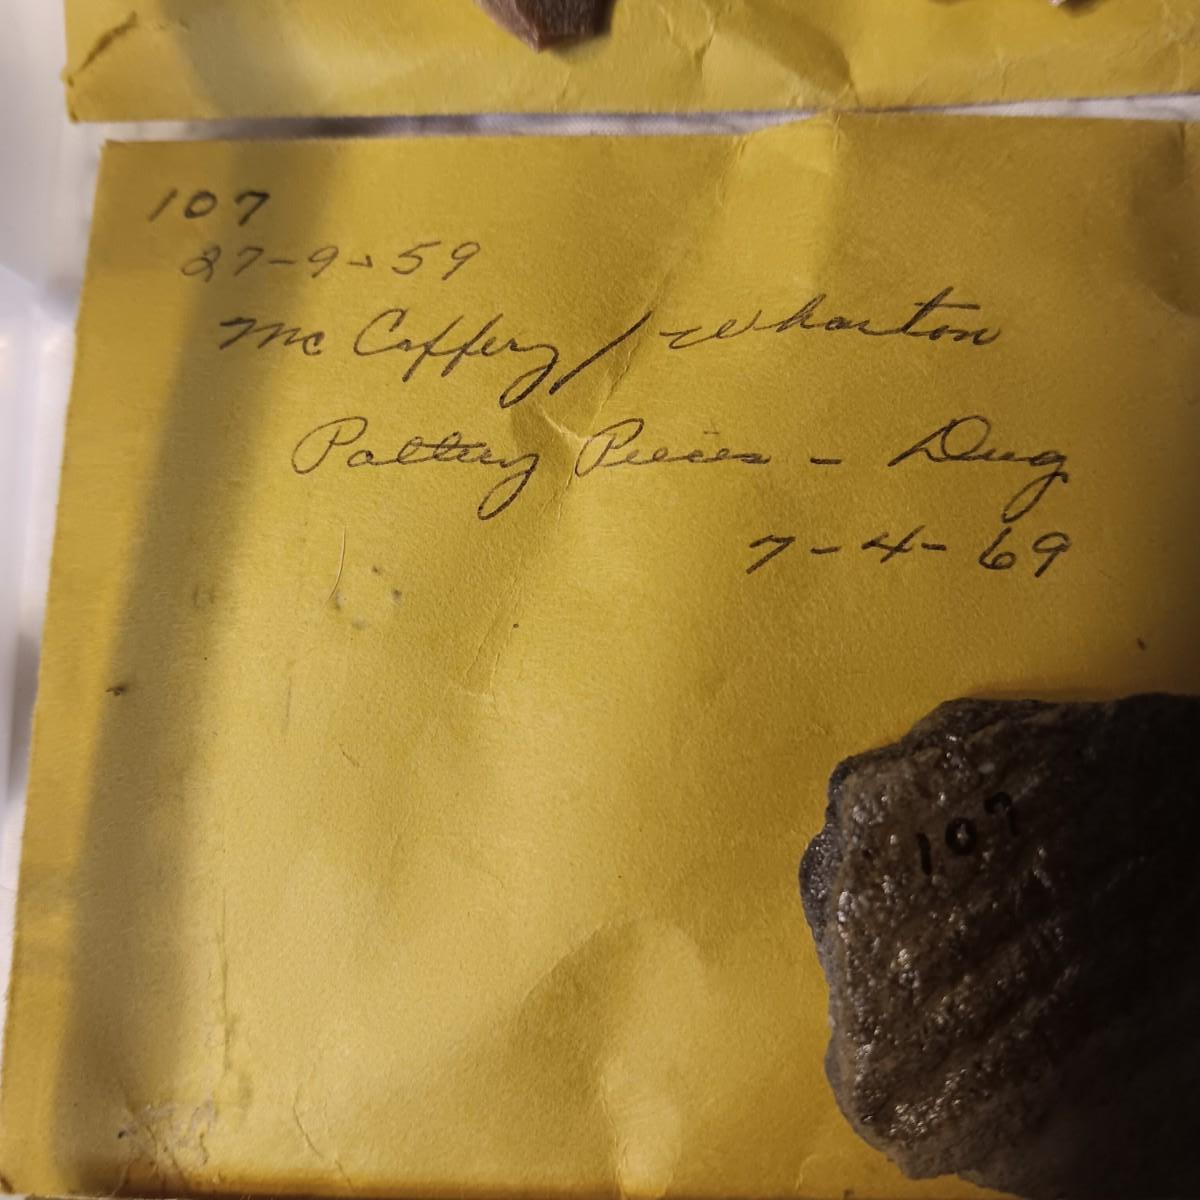 107
27-9-59
Mc Caffery / Wharton
Pottery Pieces - Dug
7-4-69
107